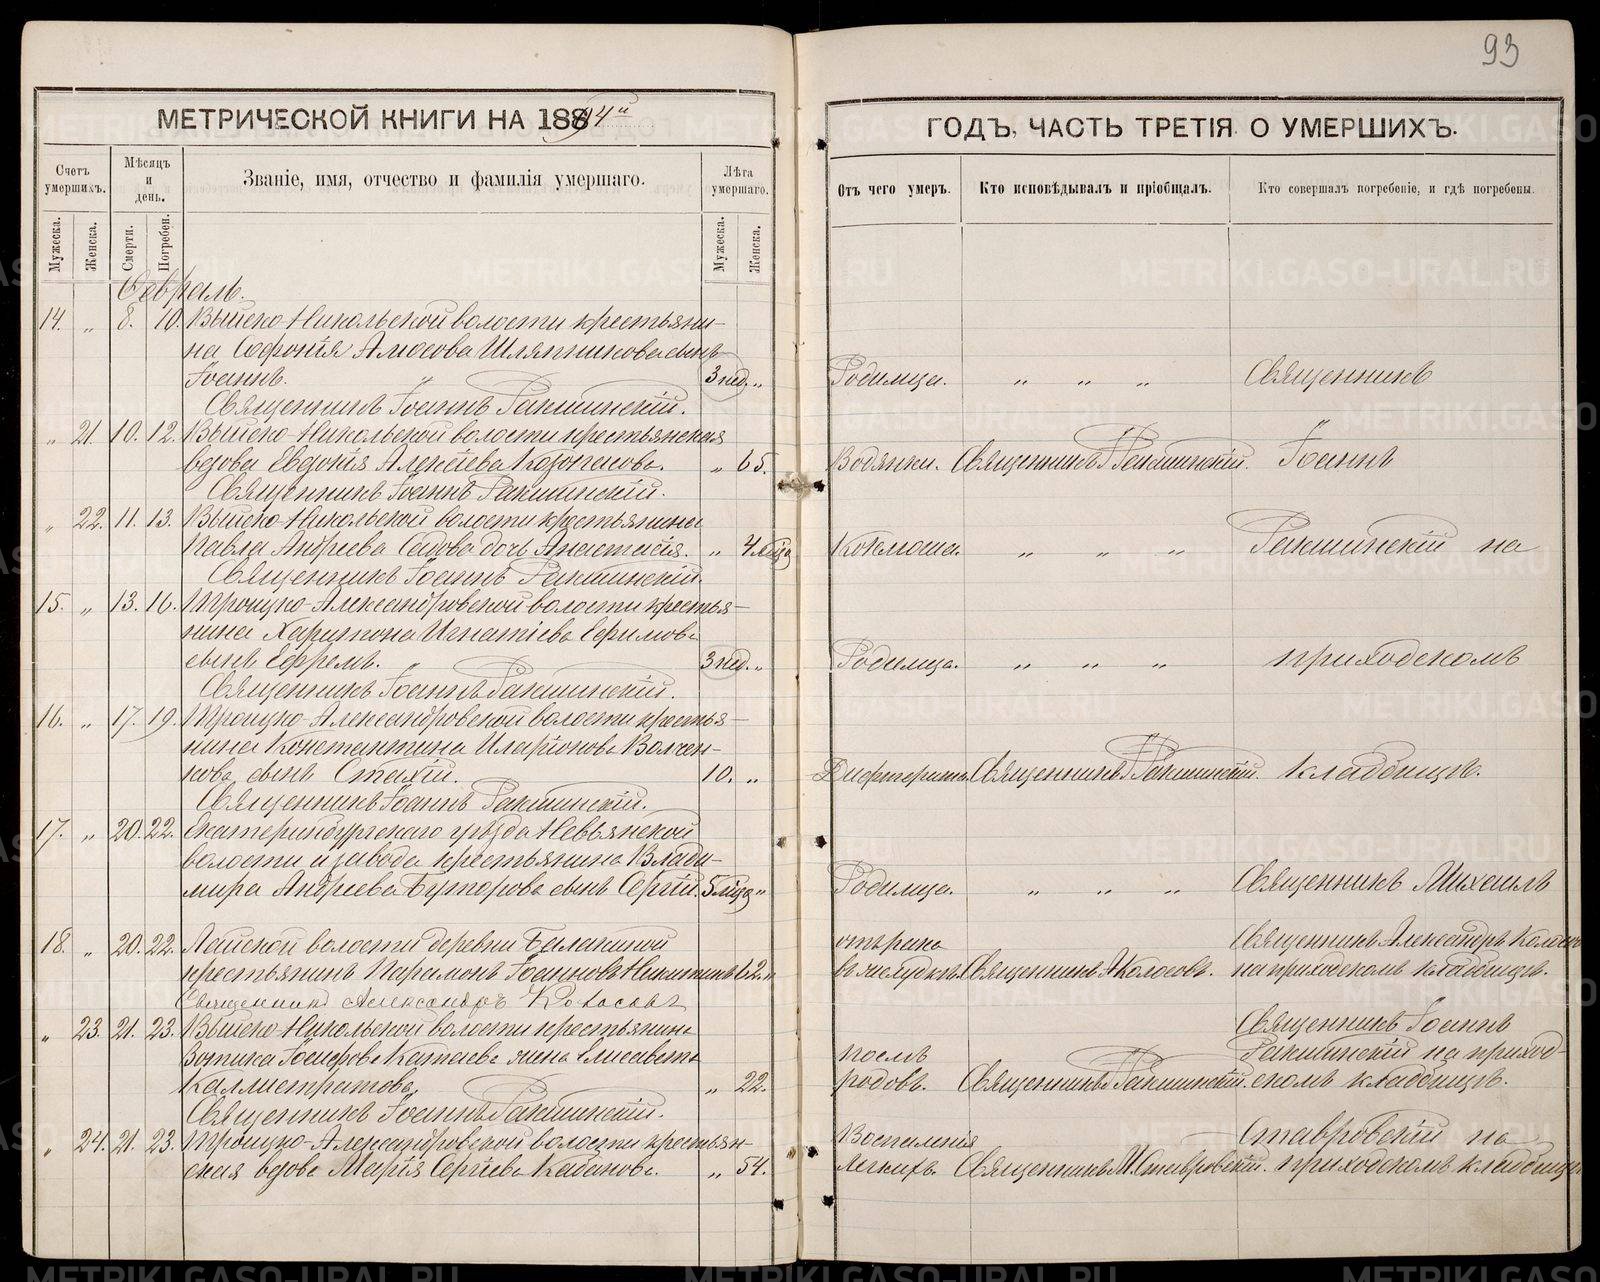 93
МЕТРИЧЕСКОЙ КНИГИ НА 1884й
ГОДЪ, ЧАСТЬ ТРЕТІЯ О УМЕРШИХЪ.
Счетъ умершихъ.
Мѣсяцъ и день.
Званіе, имя, отчество и фамилія умершаго.
Лѣта умершаго.
Отъ чего умеръ.
Кто исповѣдывалъ и пріобщалъ.
Кто совершалъ погребеніе, и гдѣ погребены.
Мужеска.
Женска.
Смерти.
Погребен.
Мужеска.
Женска.
Февраль.
14. „ 8. 10. Выйско-Никольской волости крестьяни-
на Софронія Амосова Шляпникова сынъ
Іоаннъ. 3 нед. „ Родимца. „ „ „ Священникъ
Священникъ Іоаннъ Ракшинскій.
„ 21. 10. 12. Выйско-Никольской волости крестьянская
вдова Евдокія Алексіева . „ 65. Водянки. Священникъ Ракшинскій. Іоаннъ
Священникъ Іоаннъ Ракшинскій.
„ 22. 11. 13. Выйско-Никольской волости крестьянина
Павла Андреева Седова дочь Анастасія. „ 4 м҃ца Коклюша. „ „ „ Ракшинскій на
Священникъ Іоаннъ Ракшинскій.
15. „ 13. 16. Троицко-Александровской волости крестья-
нина Харитона Игнатіева Ефимова
сынъ Ефремъ. 3 нед. „ Родимца. „ „ „ приходскомъ
Священникъ Іоаннъ Ракшинскій.
16. „ 17. 19. Троицко-Александровской волости крестья-
нина Константина Иларіонова Волчен-
кова сынъ Стахій. 10. „ Дифтерита. Священникъ Ракшинскій. кладбищѣ.
Священникъ Іоаннъ Ракшинскій.
17. „ 20. 22. Екатеринбургскаго уѣзда Невьянской
волости и завода крестьянина Влади-
мира Андреева Буторова сынъ Сергій. 5 м҃ца „ Родимца. „ „ „ Священникъ Михаилъ
18. „ 20. 22. Лайской волости деревни Балакиной отъ рака Священникъ Александръ Колосовъ
крестьянинъ Парамонъ Іоанновъ Никитинъ 62. „ въ желудкѣ. Священникъ А Колосовъ. на приходскомъ кладбищѣ.
Священникъ Александръ Колосовъ
„ 23. 21. 23. Выйско-Никольской волости крестьянина Священникъ Іоаннъ
Вотика Катаева жена Елисавета послѣ Ракшинскій на приход-
Каллистратова. „ 22. родовъ. Священникъ Ракшинскій. скомъ кладбищѣ.
Священникъ Іоаннъ Ракшинскій.
„ 24. 21. 23. Троицко-Александровской волости крестьян- Воспаленія Ставровскій на
ская вдова Марія Сергіева Кабанова. „ 54. легкихъ. Священникъ М. Ставровскій. приходскомъ кладбищѣ
METRIKI.GASO-URAL.RU